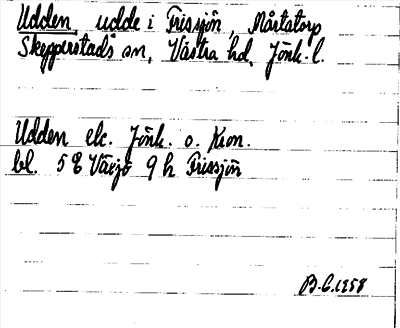 Udden, udde i Frissjön, Mårtatorp
Skepperstads sn, Västra hd, Jönk. l.
Udden ek. Jönk. o. Kron.
bl. 5 E Växjö 9 h Frissjön
B.C. 1958